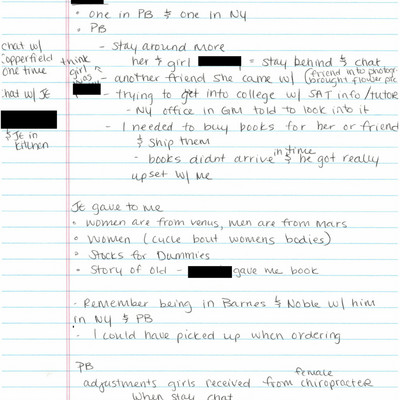 • one in PB & one in NY
• PB
- stay around more
chat w/ Copperfield one time
think girl was
her & girl = stay behind & chat
- another friend she came w/ (friend into photogr. brought flower pic
chat w/ JE
- trying to get into college w/ SAT info/tutor
- NY office in GM told to look into it
& JE in kitchen
- I needed to buy books for her or friend
& ship them
- books didnt arrive in time & he got really
upset w/ me
JE gave to me
• women are from venus, men are from Mars
• Women (cycle bout womens bodies)
• Stocks for Dummies
• Story of old - gave me book
- Remember being in Barnes & Noble w/ him
in NY & PB
- I could have picked up when ordering
PB
adjustments girls received from female chiropracter
When stay chat